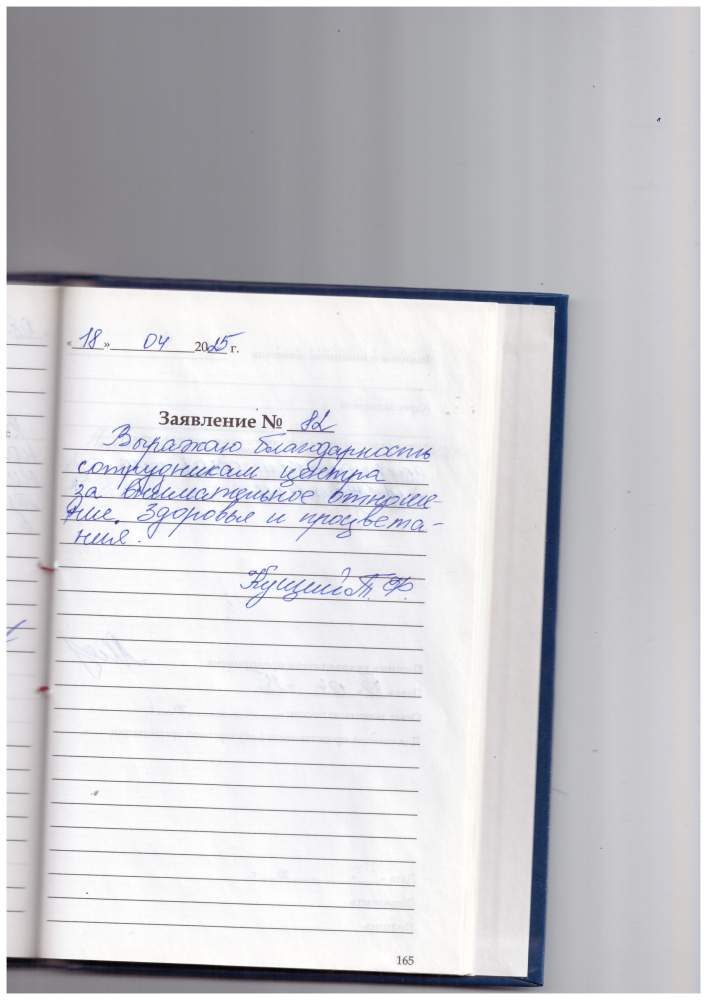 «18» 04 2025 г.
Заявление № 82
Выражаю благодарность
сотрудникам центра
за внимательное отноше-
ние. Здоровья и процвета-
ния.
Кущий Т. Ф.
165